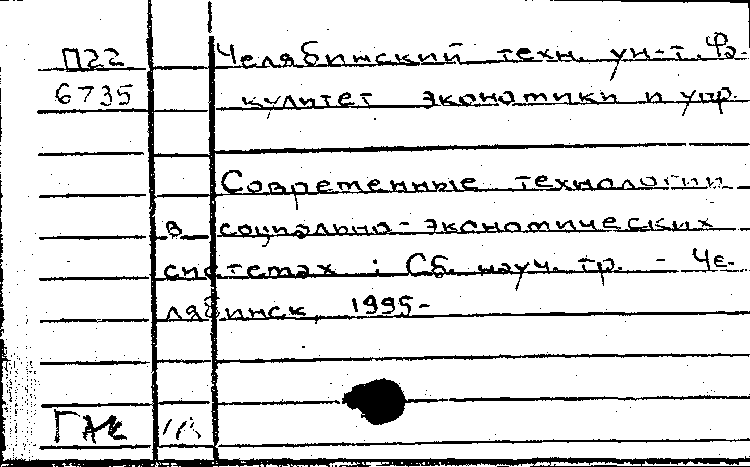 П22 Челябинский техн. ун-т. Фа-
6735 культет экономики и упр.
Современные технологии
в социально-экономических
системах : Сб. науч. тр. - Че-
лябинск, 1995-